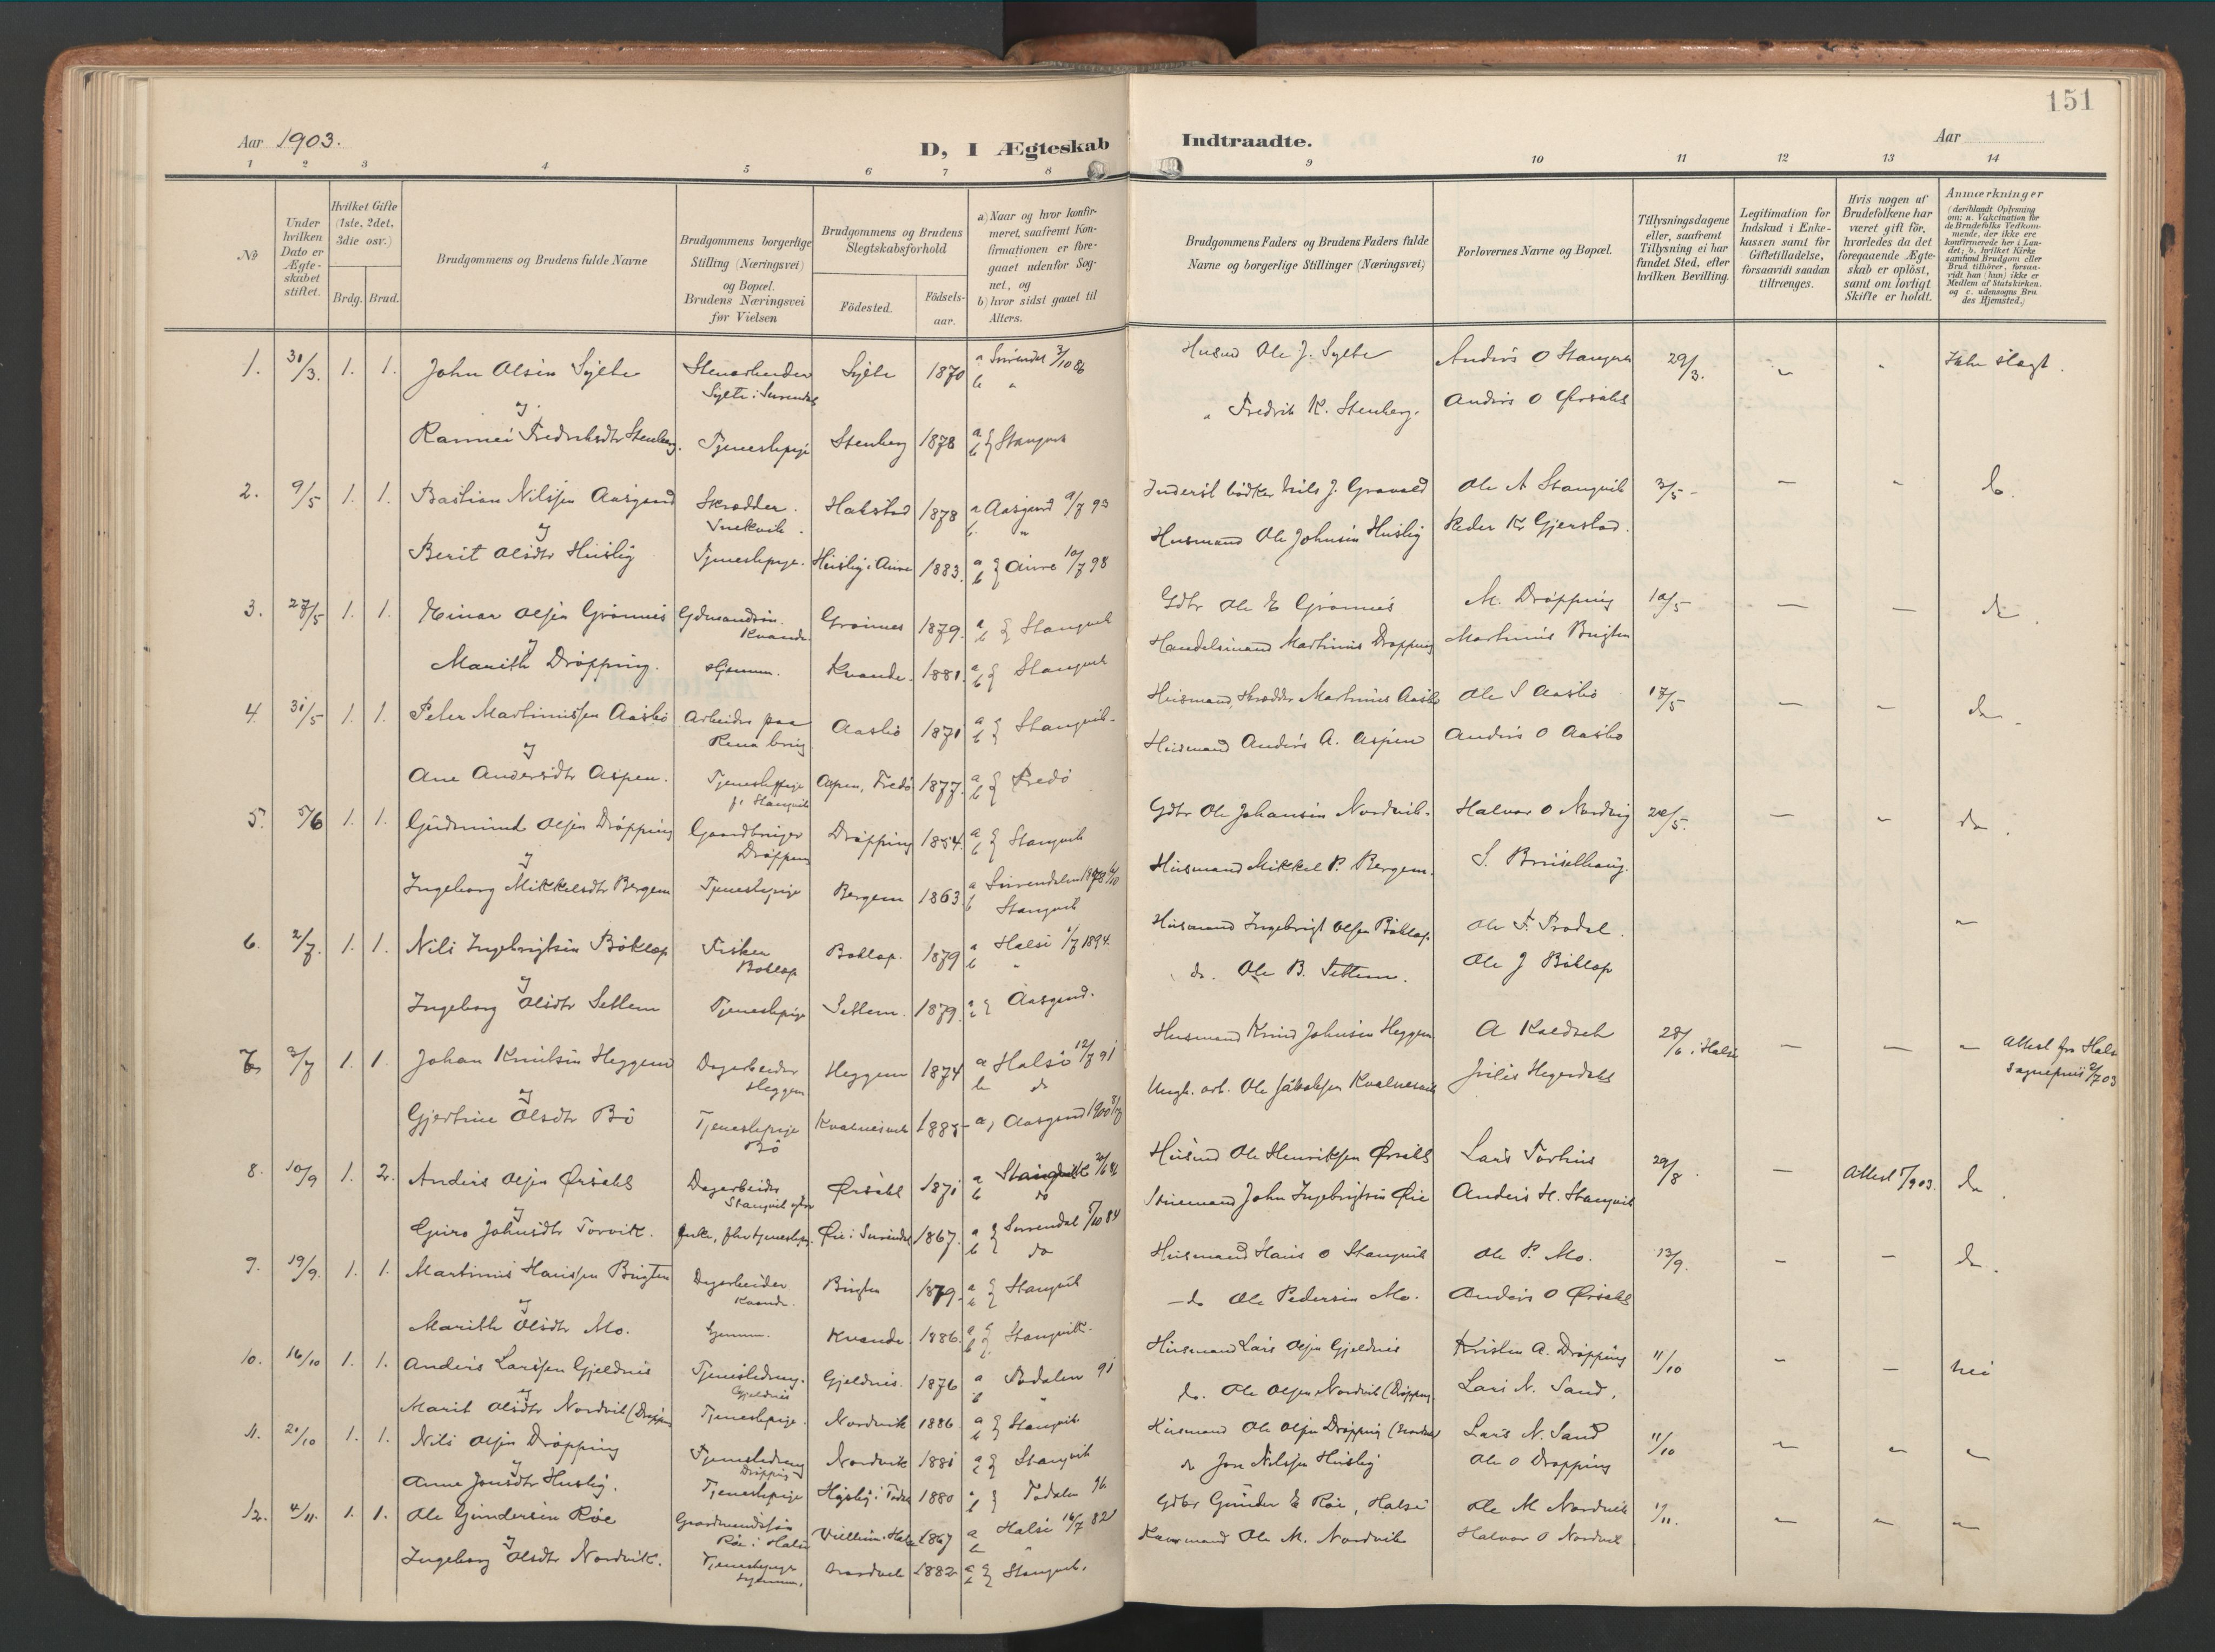 151
Aar 1903.
D, I Ægteskab
Indtraadte.
Aar
1 2 3 4 5 6 7 8 9 10 11 12 13 14
No
Under hvilken Dato er Ægteskabet stiftet.
Hvilket Gifte (1ste, 2det, 3die osv.)
Brdg. Brud.
Brudgommens og Brudens fulde Navne
Brudgommens borgerlige Stilling (Næringsvei) og Bopæl. Brudens Næringsvei før Vielsen
Brudgommens og Brudens Slegtskabsforhold
Födested.
Födsels-aar.
a) Naar og hvor konfirmeret, saafremt Konfirmationen er foregaaet udenfor Sognet, og
b) hvor sidst gaaet til Alters.
Brudgommens Faders og Brudens Faders fulde Navne og borgerlige Stillinger (Næringsvei)
Forlovernes Navne og Bopæl.
Tillysningsdagene eller, saafremt Tillysning ei har fundet Sted, efter hvilken Bevilling.
Legitimation for Indskud i Enkekassen samt for Giftetilladelse, forsaavidt saadan tiltrænges.
Hvis nogen af Brudefolkene har været gift för, hvorledes da det foregaaende Ægteskab er oplöst, samt om lovligt Skifte er holdt.
Anmærkninger
(deriblandt Oplysning om: a. Vakcination for de Brudefolks Vedkommende, der ikke ere konfirmerede her i Landet; b. hvilket Kirkesamfund Brudgom eller Brud tilhörer, forsaavidt han (hun) ikke er Medlem af Statskirken, og c. udensogns Brudes Hjemsted.)
1. 31/3. 1. 1. John Olsen Sylte Stenarbeider Sylte 1870 a Surendal 3/10 86 Husmd Ole J. Sylte Anders O Stangvik 29/3. Ikke slagt.
Sylte i Surendal b "
og
" Fredrik K. Stenberg. Anders O Ørsahl
Rannei Fredriksdtr Stenberg. Tjenestepige Stenberg 1878 a b } Stangvik
2. 9/5 1. 1. Bastian Nilssen Aasgaard Skrædder. Halsstad 1878 a Aasgaard 9/7 93 Inderst bödker Nils J. Grønvold Ole A Stangvik 3/5 - — " do.
b. "
og
Husmand Ole Johnsen Huslig Peder Kr Gjerstad.
Berit Olsdtr Huslig Tjenestepige. Huslig i Aure 1883. a b } Aure 10/7 98
3. 27/5 1. 1. Einar Olsen Grönnes Gdmandssön. Kvande. Grönnes 1879. a b } Stangvik Gdbr Ole E Grönnes M. Dröpping 10/5 — — do.
og
Handelsmand Martinus Dröpping Martinus Brigten
Marith Dröpping. Hjemme. Kvande. 1881. a b } Stangvik
4. 31/5 1. 1. Peter Martinussen Aasbö Arbeider paa Aasbö 1871 a b } Stangvik. Husmand, Skrædder Martinus Aasbö Ole S Aasbö 17/5 — — do.
Rena brug.
og
Husmand Anders A. Aspen Anders O Aasbö
Ane Andersdtr Aspen. Tjenestepige Aspen, Fredö 1877. a b } Fredö
5. 5/6 1. 1. Gudmund Olsen Dröpping Gaardbruger Dröpping 1854. a b } Stangvik Gdbr Ole Johansen Nordvik. Halvor O Nordvig 20/5. — " do.
og
Husmand Mikkel P. Bergem. S. Bruselhaug.
Ingeborg Mikkelsdtr Bergem Tjenestepige Bergem 1863 a Surendalen
b Stangvik
6. 2/7. 1. 1. Nils Ingebrigtsen Böklep Fisker Boklep. 1879 a Halse 1/7 1894. Husmand Ingebrigt Olsen Böklep. Ole F. Prodal. "
Boklep b "
og
do. Ole B. Settem. Ole J Böklep
Ingeborg Olsdtr Settem Tjenestepige Settem. 1879. a b } Aasgaard.
7. 3/7 1. 1. Johan Knutsen Heggem Dagarbeider Heggem 1874 a Halse 12/7 91 Husmand Knud Johnsen Heggem A Kaldseth 28/6 i Halse — — " Attest fra Halse
Heggem b do Sognepræst 2/7 03
og
Ungk. arb. Ole Jakobsen Kvalnesvik
Gjertine Olsdtr Bö Tjenestepige Kvalnesvik a, Aasgaard 1900
Bö
8. 10/9 1. 2. Anders Olsen Ørsahl Dagarbeider Ørsahl 1871 a Stangvik Husmd Ole Henriksen Ørsahl Lars Torhus 29/8. — Attest do.
b do
og
Husmand John Ingebrigtsen Øie Anders H. Stangvik
Guro Johnsdtr Torvik. Enke, Øie i Surendal 1867. a b } Surendal 5/10 84
do
9. 19/9. 1. 1. Martinus Hanssen Brigten Dagarbeider Brigten 1879. a b } Stangvik Husmand Hans O Stangvik Ole P. Mo. 13/9. — — do.
Kvande.
og
— do Ole Pedersen Mo. Anders O Ørsahl
Marith Olsdtr Mo. Hjemme. Kvande. 1886. a b } Stangvik.
10. 16/10 1. 1. Anders Larssen Gjeldnes Tjenestedreng. Gjeldnes. 1876 a Todalen 91 Husmand Lars Olsen Gjeldnes Kristen A. Dröpping 11/10 " — nei
Gjeldnes b "
og
do. Ole Olsen Nordvik (Dröpping Lars N. Sand.
Marit Olsdtr Nordvik (Dröpping Tjenestepige. Nordvik 1886 a b } Stangvik
11. 20/10 1. 1. Nils Olsen Dröpping Tjenestedreng Nordvik 1881 a b } Stangvik Husmand Ole Olsen Dröpping (Nordvik) Lars N. Sand 11/10 — " "
Dröpping
og
do Jon Nilssen Huslig Ole O Dröpping
Anne Jonsdtr Huslig. Tjenestepige Huslig i Todal 1880 a b } Todalen 96.
12. 4/11. 1. 1. Ole Gundersen Röe Gaardmandssön 1867 a Halse 16/7 82 Gdbr Gunder E Röe, Halse Ole M Nordvik 1/11. — " "
Röe i Halse b "
og
Ole M. Nordvik Halvor O Nordvik
Ingeborg Olsdtr Nordvik. Tjenestepige Nordvik 1882 a b } Stangvik.
hjemme.